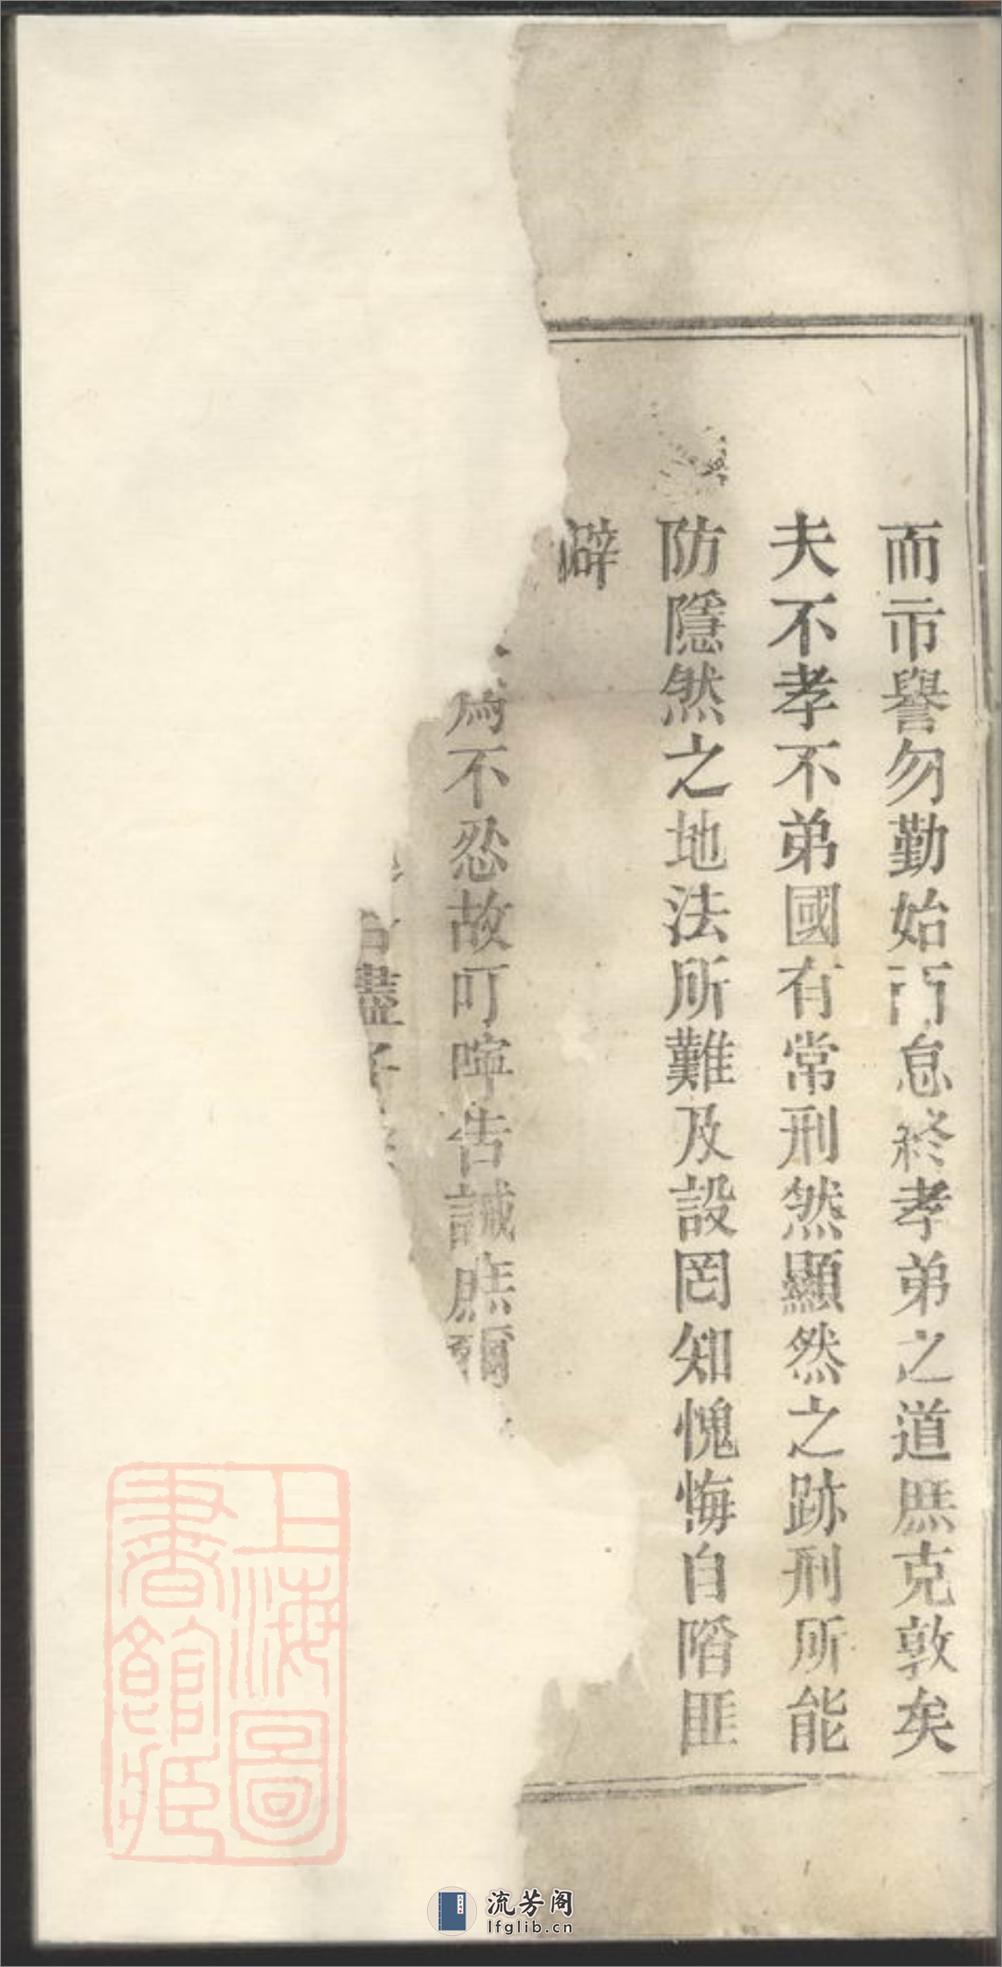 而市譽勿勤始而怠終孝弟之道庶克敦矣
夫不孝不弟國有常刑然顯然之跡刑所能
防隱然之地法所難及設罔知愧悔自陷匪
僻
爲不忍故叮嚀告誡庶爾
盡子
上海圖書館藏
流芳阁
lfglib.cn